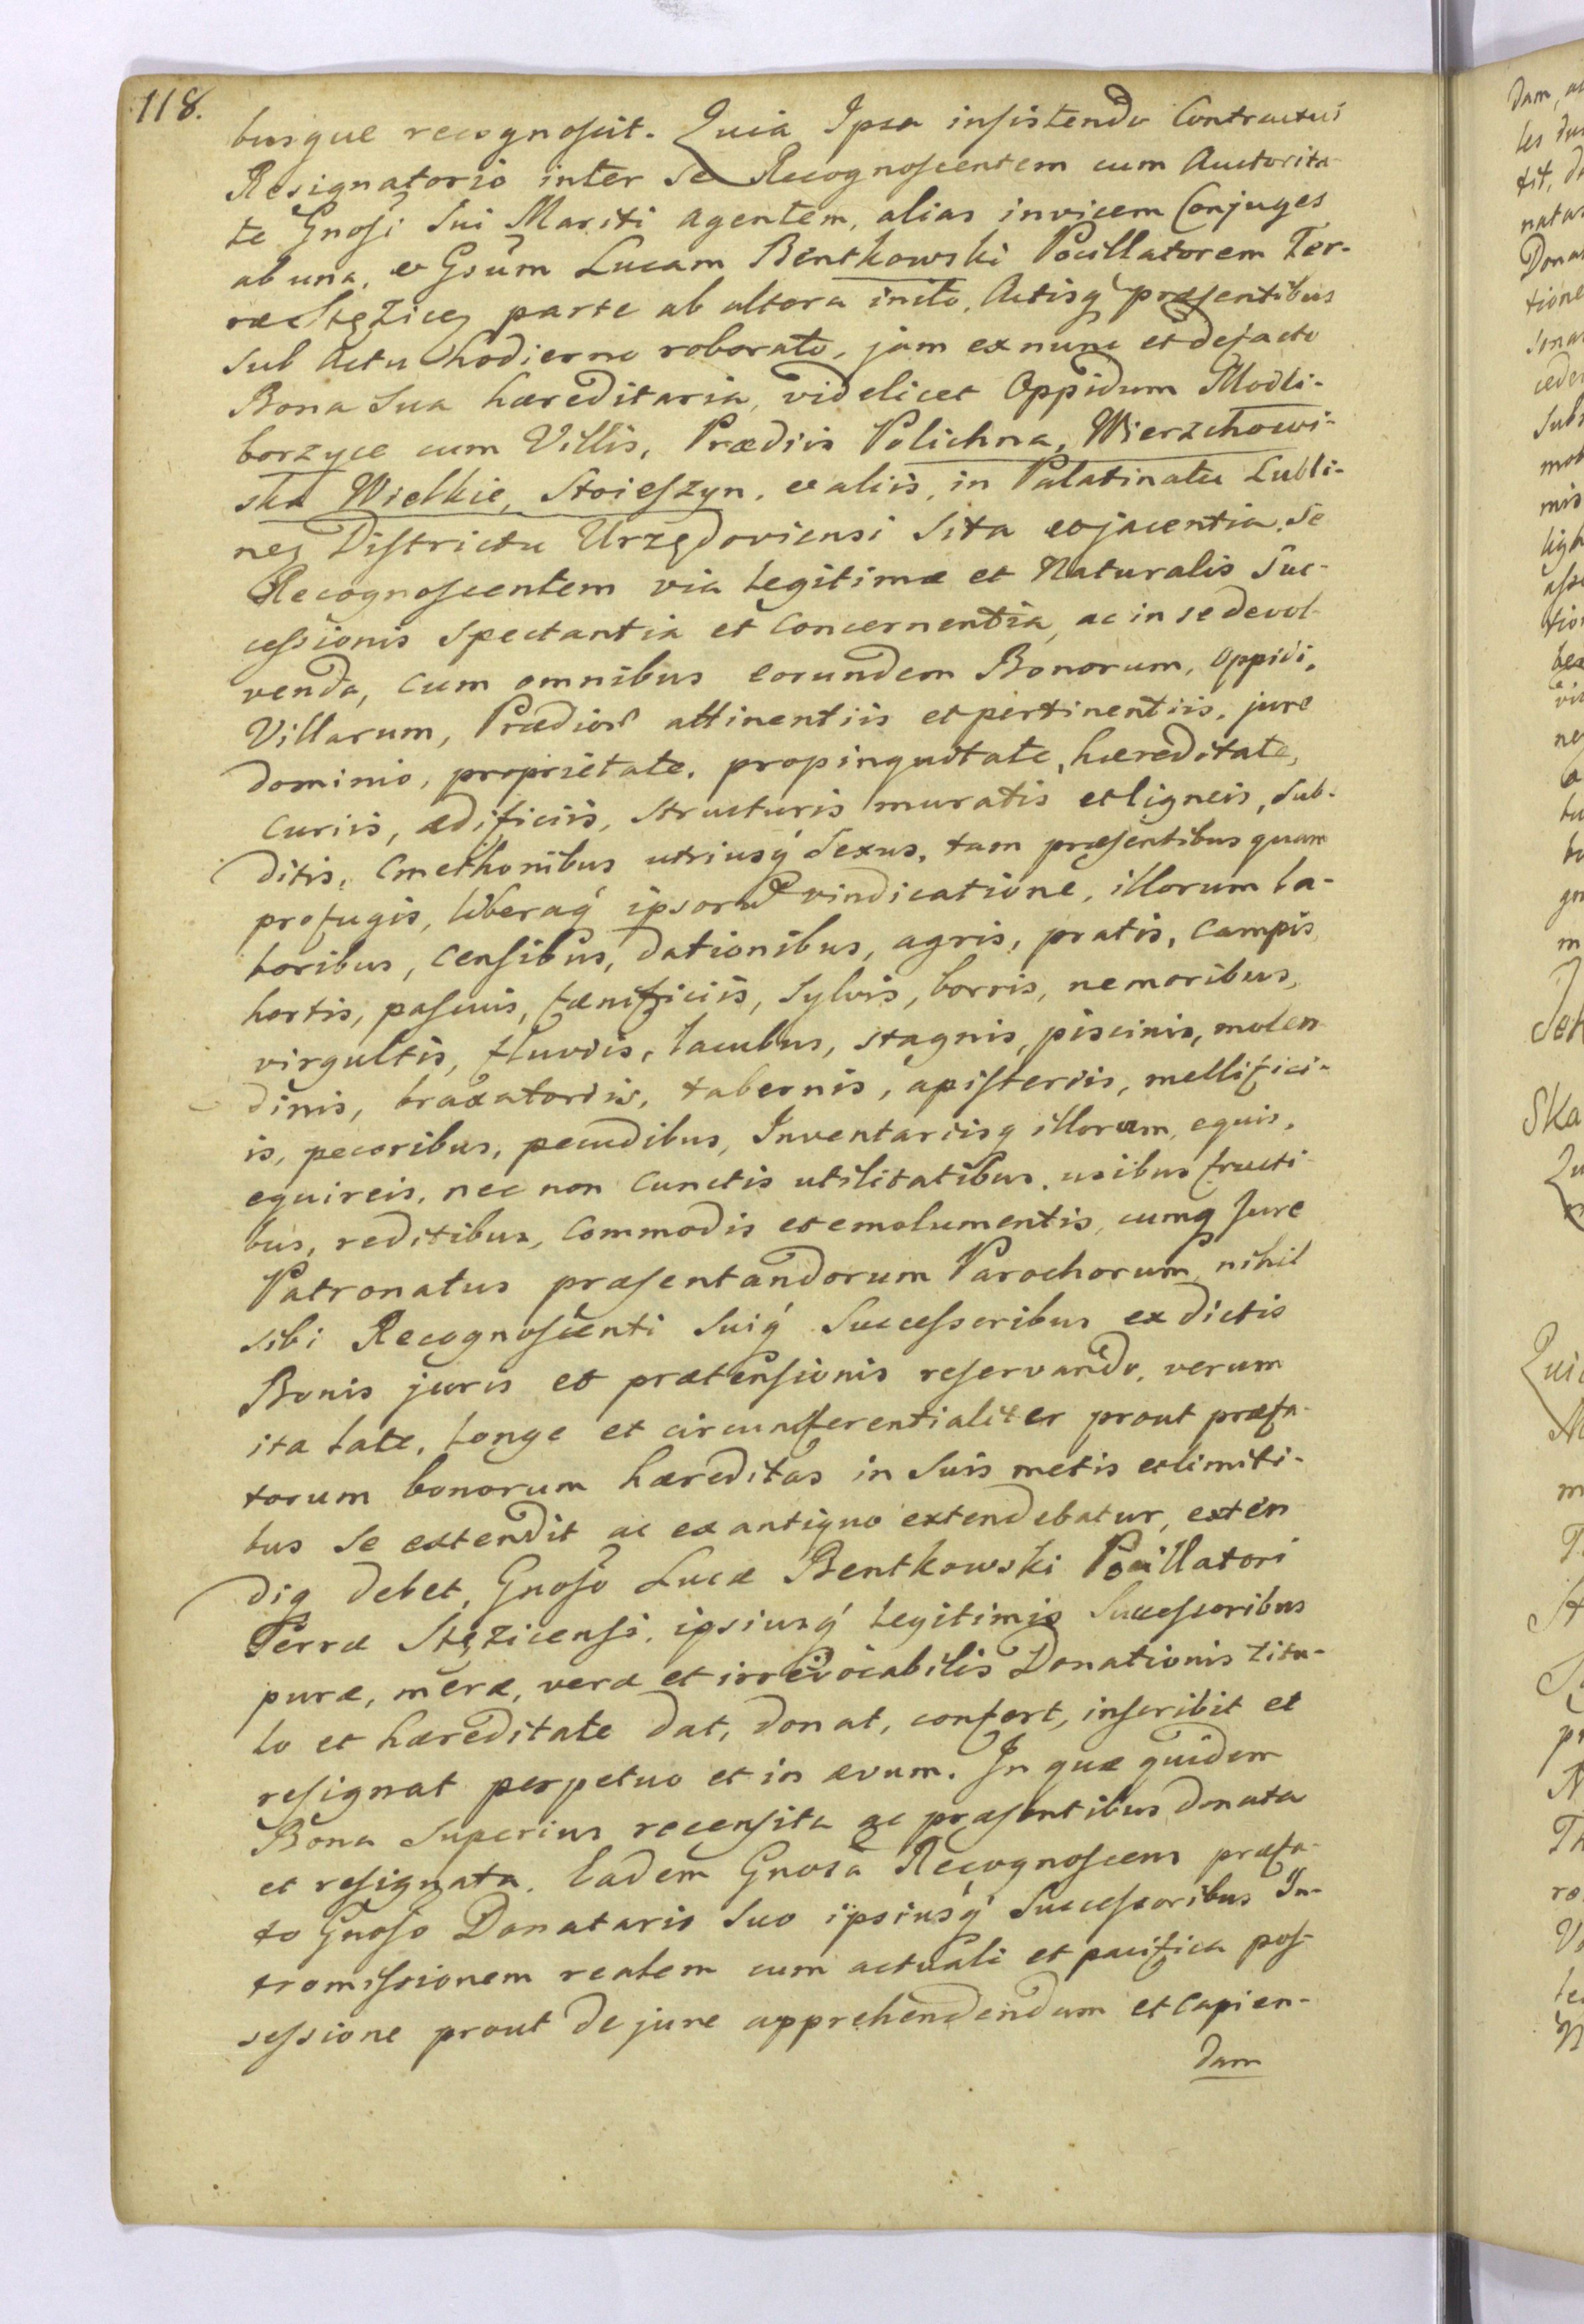 118.
busque recognoscit. Quia Ipsa insistendo Contractui
Resignatorio inter se Recognoscentem cum Auctorita-
te Gnosi Sui Mariti agentem, alias invicem Conjuges
ab una, et Gsum Lucam Bentkowski Pocillatorem Ter-
ræ Stęzicen parte ab altera inito, Actisq præsentibus
sub Actu hodierno roborato, jam exnunc et defacto
Bona Sua hæreditaria, videlicet Oppidum Modli-
borzyce cum Villis, Prædiis Polichna, Wierzchowi-
ska Wielkie, Stoieszyn, et aliis, in Palatinatu Lubli-
nen Districtu Urzędoviensi Sita et jacentia, Se
Recognoscentem via Legitimæ et Naturalis Suc-
cessionis Spectantia et Concernentia, ac in se devol-
venda, cum omnibus eorundem Bonorum, Oppidi,
Villarum, Prædior attinentiis et pertinentiis, jure
dominio, proprietate, propinquitate, hæreditate,
Curiis, ædificiis, Structuris muratis et ligneis, Sub-
ditis, Cmethonibus utriusq Sexus, tam præsentibus quam
profugis, liberaq ipsorum vindicatione, illorum la-
boribus, Censibus, dationibus, agris, pratis, Campis,
hortis, pascuis, fænificiis, Sylvis, borris, nemoribus,
virgultis, fluviis, lacubus, Stagnis, piscinis, molen
dinis, braxatoriis, tabernis, apisteriis, mellifici-
is, pecoribus, pecudibus, Inventariisq illorum, equis,
equireis, nec non Cunctis utilitatibus, usibus fructi-
bus, reditibus, Commodis et emolumentis, cumq Jure
Patronatus præsentandorum Parochorum, nihil
sibi Recognoscenti Suisq Successoribus ex dictis
Bonis juris et prætensionis reservando, verum
ita late, longe et circumferentialiter prout præfa-
torum bonorum hæreditas in Suis metis et limiti-
bus Se extendit ac ex antiquo extendebatur, exten
diq debet, Gnoso Lucæ Bentkowski Pocillatori
Terræ Stęzicensi, ipsiusq legitimis Successoribus
puræ, meræ, veræ et irrevocabilis Donationis titu-
lo et hæreditate dat, donat, confert, inscribit et
resignat perpetuo et in ævum. In quæ quidem
Bona Superius recensita ac præsentibus donata
et resignata, Eadem Gnosa Recognoscens præfa-
to Gnoso Donatario Suo ipsiusq Successoribus In-
tromissionem realem cum actuali et pacifica pos-
sessione prout de jure apprehendendam et Capien-
dam